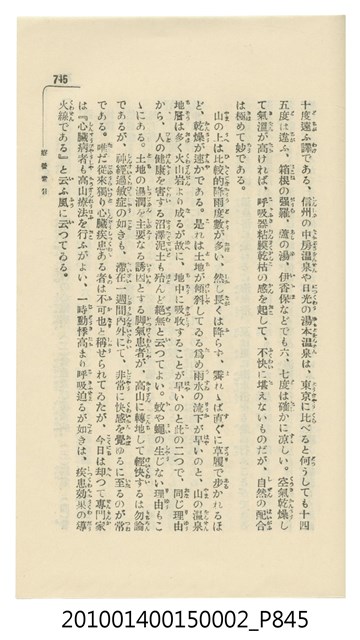 745
療養案内
十度違ふ譯である、信州の中房温泉や日光の湯本温泉は、東京に比べると何うしても十四
五度は違ふ、箱根の强羅、蘆の湯、伊香保などでも六、七度は確かに凉しい。空氣乾燥し
て氣温が高ければ、呼吸器粘膜乾枯の感を起して、不快に堪えないものだが、自然の配合
は極めて妙である。
山の上は比較的降雨度數が多い、然し長くは降らず、霽れゝば直ぐに草履で步かれるほ
ど、乾燥が速かである。是れは土地が傾斜してゐる爲め雨水の流下が早いのと、山の温泉
地層は多く火山岩より成るが故に、地中に吸收することが早いのと此の二つで、同じ理由
から、人の健康を害する沼澤泥土も殆んど絕無と云つてよい。蚊や蠅の生じない理由もこ
ゝにある。土地の濕潤を主要なる誘因とする脚氣患者が、高山に轉地して輕快するは勿論
であるが、神經過敏症の如きも、滯在一週間內外にて、非常に快感を覺ゆるに至るのが常
である。唯だ從來獨り心臟疾患ある者は不可也と稱せられてゐたが、今日は却つて專門家
は『心臟病者も高山療法を行ふがよい、一時動悸高まり呼吸迫るが如きは、疾患効果の導
火線である』と云ふ風に云つてゐる。
201001400150002_P845